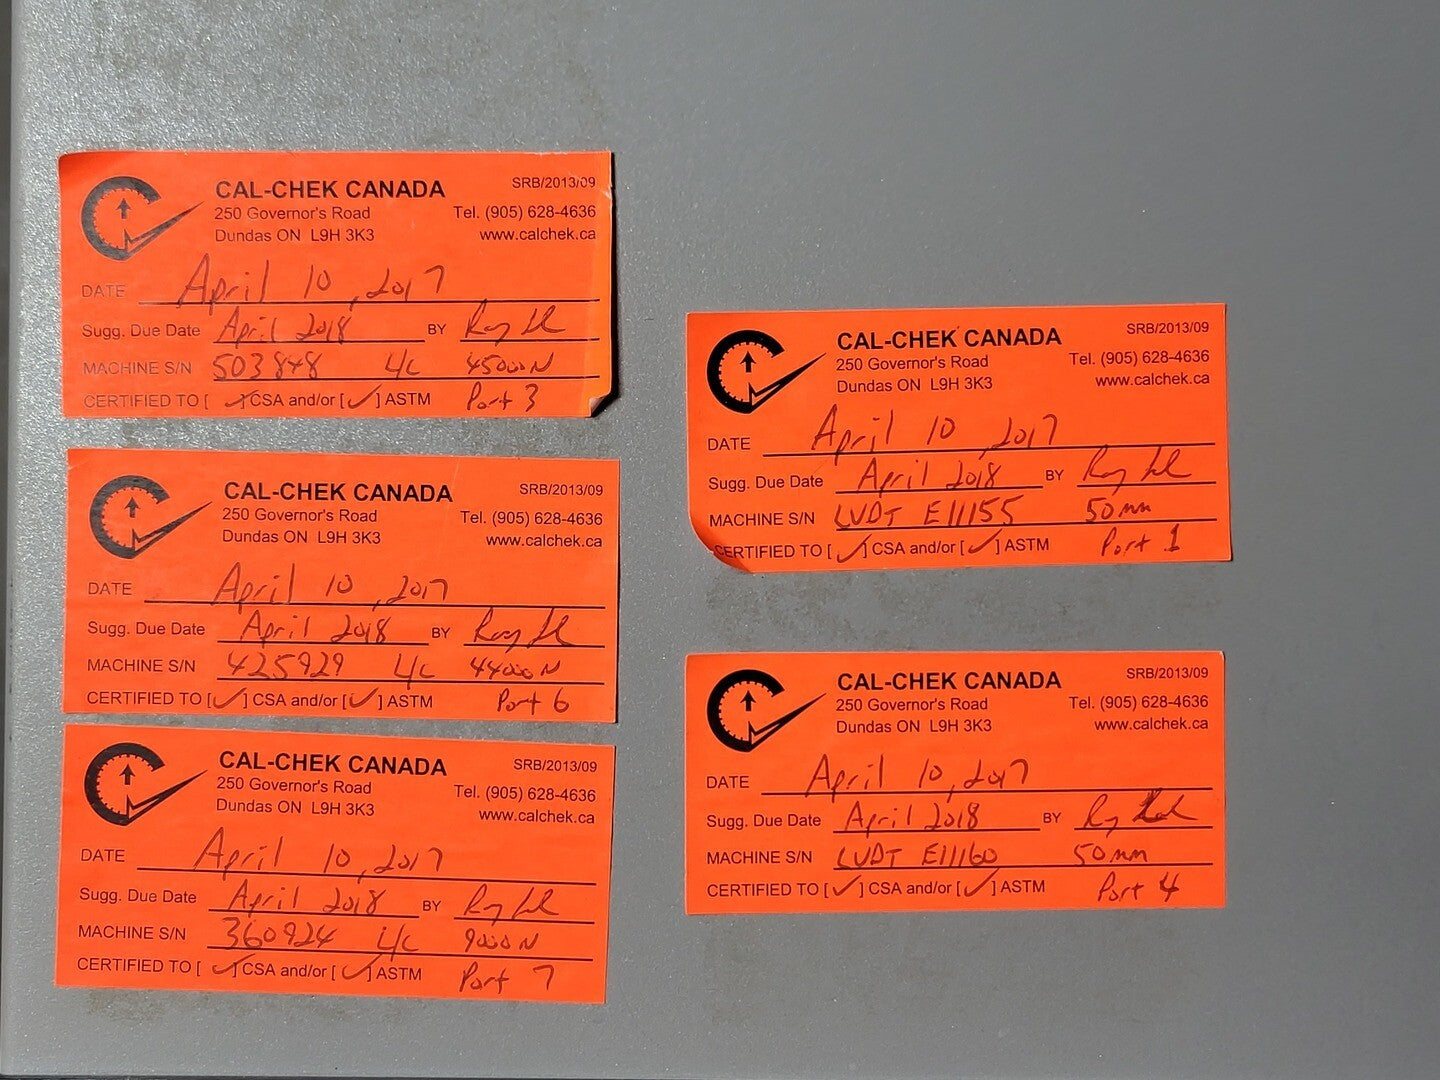 CAL-CHEK CANADA SRB/2013/09
250 Governor's Road Tel. (905) 628-4636
Dundas ON L9H 3K3 www.calchek.ca
DATE April 10, 2017
Sugg. Due Date April 2018 BY
MACHINE S/N 503848 L/C 45000N
CERTIFIED TO [✓] CSA and/or [✓] ASTM Port 3
CAL-CHEK CANADA SRB/2013/09
250 Governor's Road Tel. (905) 628-4636
Dundas ON L9H 3K3 www.calchek.ca
DATE April 10, 2017
Sugg. Due Date April 2018 BY
MACHINE S/N 425929 L/C 44000N
CERTIFIED TO [✓] CSA and/or [✓] ASTM Port 6
CAL-CHEK CANADA SRB/2013/09
250 Governor's Road Tel. (905) 628-4636
Dundas ON L9H 3K3 www.calchek.ca
DATE April 10, 2017
Sugg. Due Date April 2018 BY
MACHINE S/N 360924 L/C 9000N
CERTIFIED TO [✓] CSA and/or [✓] ASTM Port 7
CAL-CHEK CANADA SRB/2013/09
250 Governor's Road Tel. (905) 628-4636
Dundas ON L9H 3K3 www.calchek.ca
DATE April 10, 2017
Sugg. Due Date April 2018 BY
MACHINE S/N LVDT E11155 50mm
CERTIFIED TO [✓] CSA and/or [✓] ASTM Port 1
CAL-CHEK CANADA SRB/2013/09
250 Governor's Road Tel. (905) 628-4636
Dundas ON L9H 3K3 www.calchek.ca
DATE April 10, 2017
Sugg. Due Date April 2018 BY
MACHINE S/N LVDT E11160 50mm
CERTIFIED TO [✓] CSA and/or [✓] ASTM Port 4